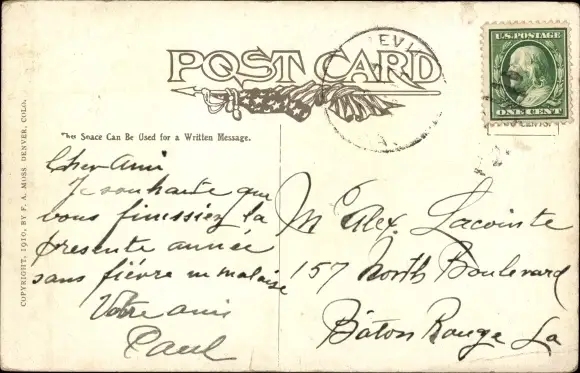 POST CARD
EVI
U.S. POSTAGE
ONE CENT
This Space Can Be Used for a Written Message.
COPYRIGHT, 1910, BY F. A. MOSS DENVER, COLO.
Cher Ami
Je souhaite que
vous finissiez la
presente année
sans fièvre ni malaise
Votre ami
Paul
M Alex. Lacointe
157 North Boulevard
Bâton Rouge La